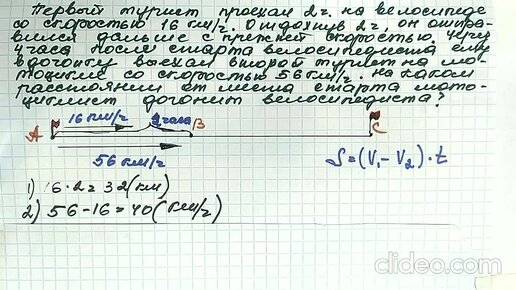 Первый турист проехал 2 г. на велосипеде
со скоростью 16 км/г. Отдохнув 2 г. он отпра-
вился дальше с прежней скоростью. Через
4 часа после старта велосипедиста ему
вдогонку выехал второй турист на мо-
тоцикле со скоростью 56 км/г. на каком
расстоянии от места старта мото-
циклист догонит велосипедиста?
16 км/г 2 часа
А В С
56 км/г S=(V₁-V₂)·t
1) 16·2=32(км)
2) 56-16=40(км/г)
clideo.com